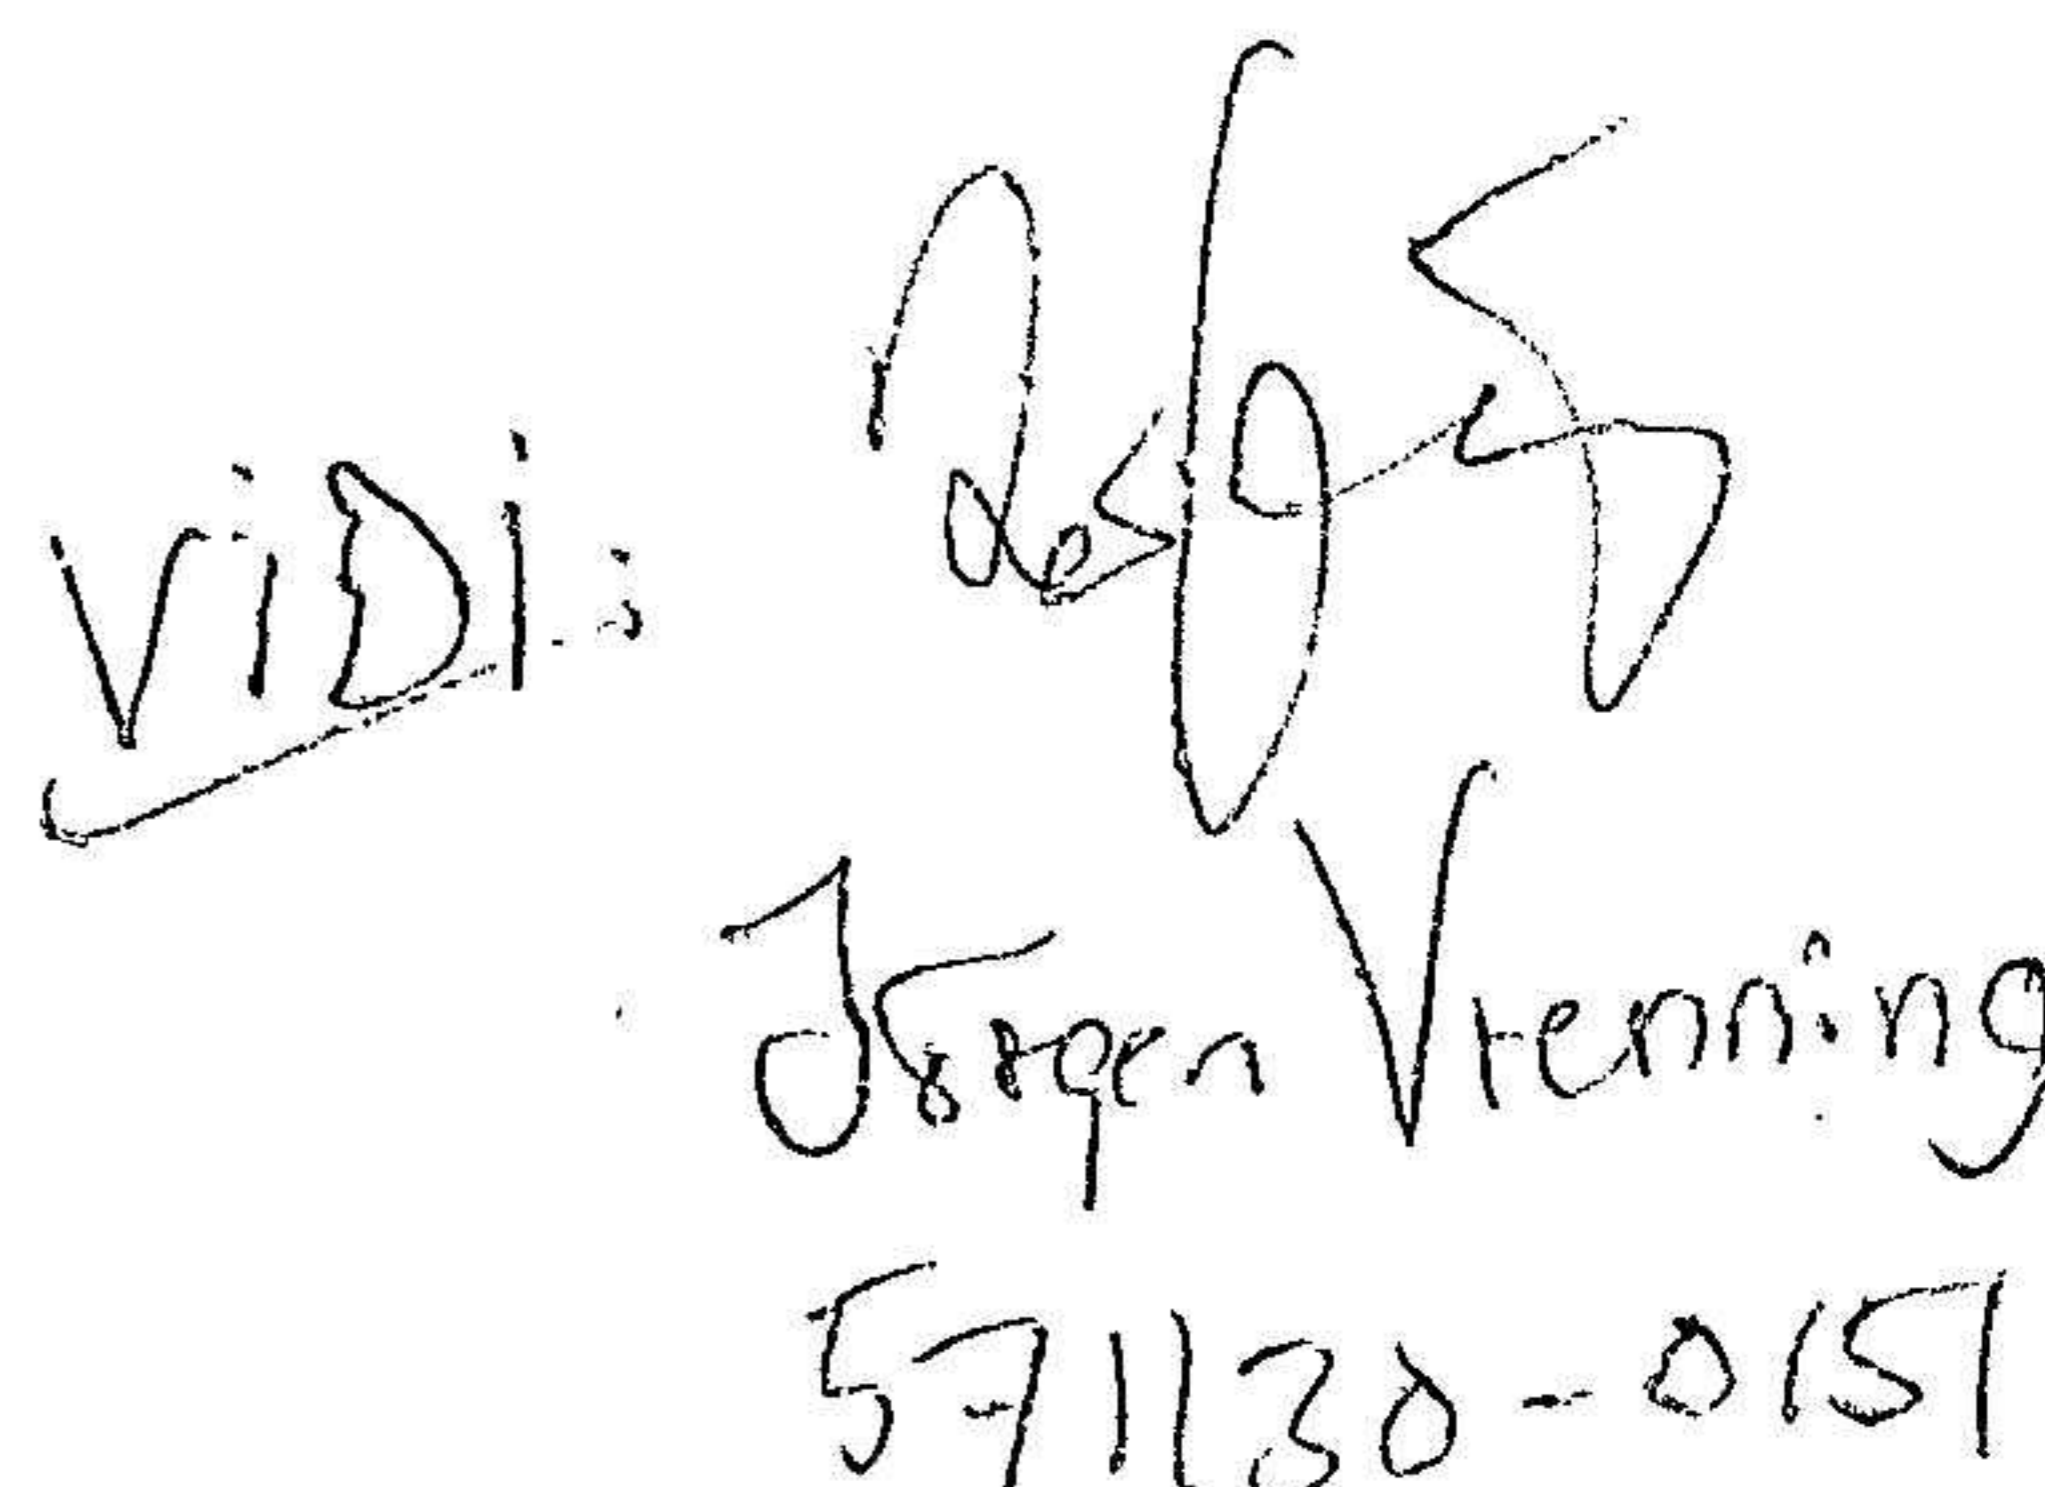 ViDi:
Jörgen Vrenning
571130-0151